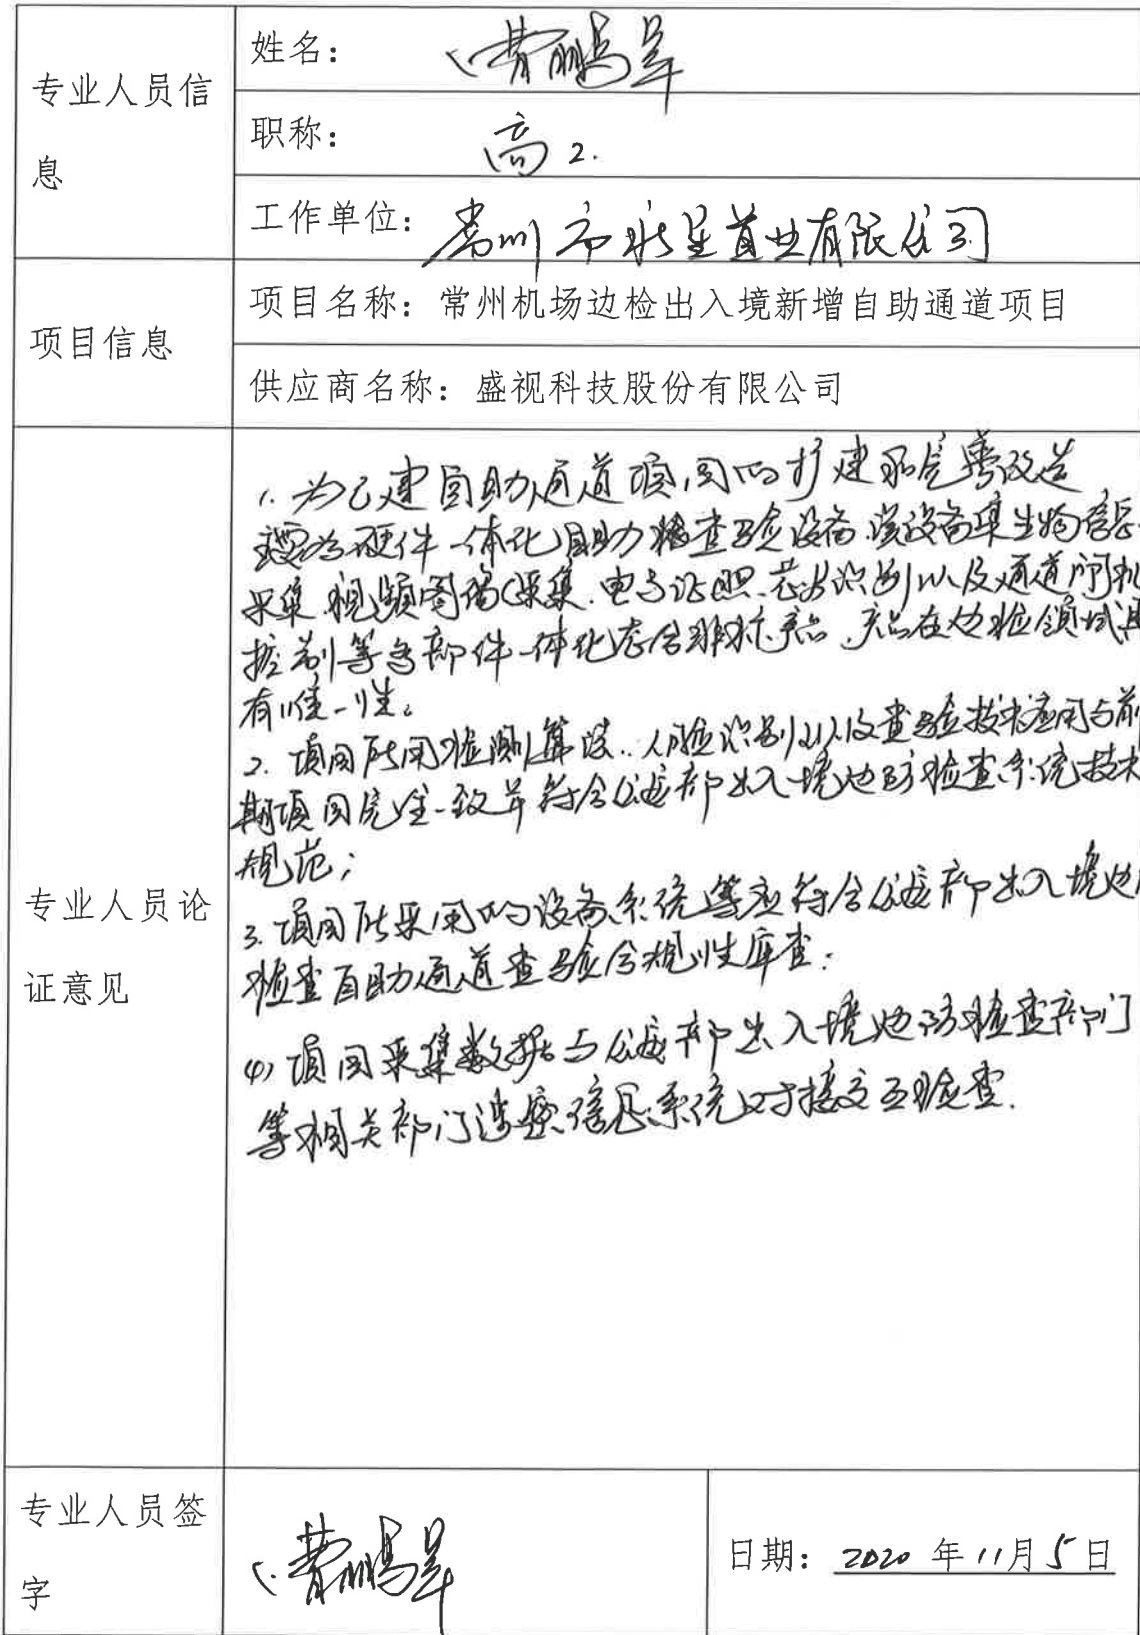 专业人员信息
姓名：曹鹏军
职称：高工.
工作单位：常州市永星置业有限公司
项目信息
项目名称：常州机场边检出入境新增自助通道项目
供应商名称：盛视科技股份有限公司
专业人员论证意见
1. 为已建自助通道项目的扩建和完善改造
主要为硬件一体化自助检查验设备.该设备集生物信息
采集.视频图像采集.电子证照.芯片识别以及通道闸机
控制等多部件一体化 非标产品.产品在边检领域具
有唯一性。
2. 项目所用检测算法..人脸识别以及查验技术应用与前
期项目完全一致并符合公安部出入境边防检查系统技术
规范；
3. 项目所采用的设备系统等应符合公安部出入境边
检查自助通道查验合规性审查：
4) 项目采集数据与公安部出入境边防检查部门
等相关部门涉密信息系统对接交互验查.
专业人员签字
曹鹏军
日期：2020年11月5日